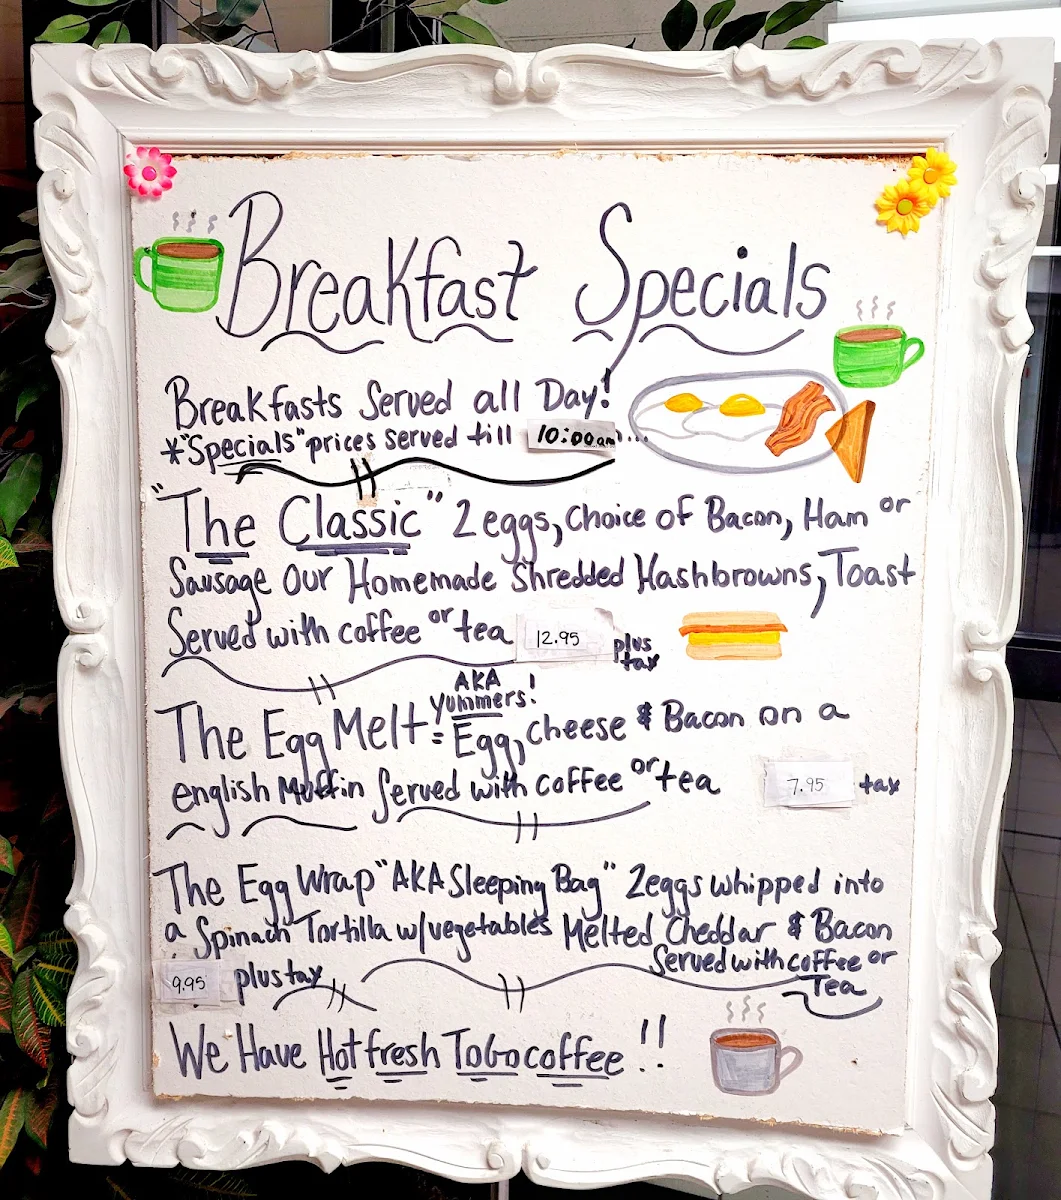 Breakfast Specials
Breakfasts Served all Day!
*"Specials" prices served till 10:00am...
"The Classic" 2eggs, Choice of Bacon, Ham or
Sausage Our Homemade Shredded Hashbrowns, Toast
Served with coffee or tea 12.95 plus tax
AKA
yummers!
The Egg Melt = Egg, cheese & Bacon on a
english Muffin Served with coffee or tea 7.95 tax
The Egg Wrap "AKA Sleeping Bag" 2eggs whipped into
a Spinach Tortilla w/vegetables Melted Cheddar & Bacon
Served with coffee or
9.95 plus tax Tea
We Have Hot fresh ToGo coffee!!